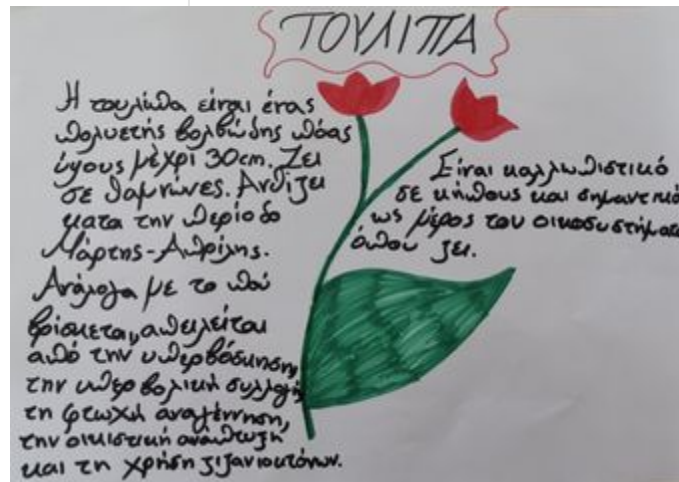 ΤΟΥΛΙΠΑ
Η τουλίπα είναι ένας
πολυετής βολβώδης πόας
ύψους μέχρι 30cm. Ζει
σε θαμνώνες. Ανθίζει
κατα την περίοδο
Μάρτης-Απρίλης.
Ανάλογα με το πού
βρίσκεται, απειλείται
από την υπερβόσκηση,
την υπερβολική συλλογή,
τη φτωχή αναγέννηση,
την οικιστική ανάπτυξη
και τη χρήση ζιζανιοκτόνων.
Είναι καλλωπιστικό
σε κήπους και σημαντικό
ως μέρος του οικοσυστήματο
όπου ζει.